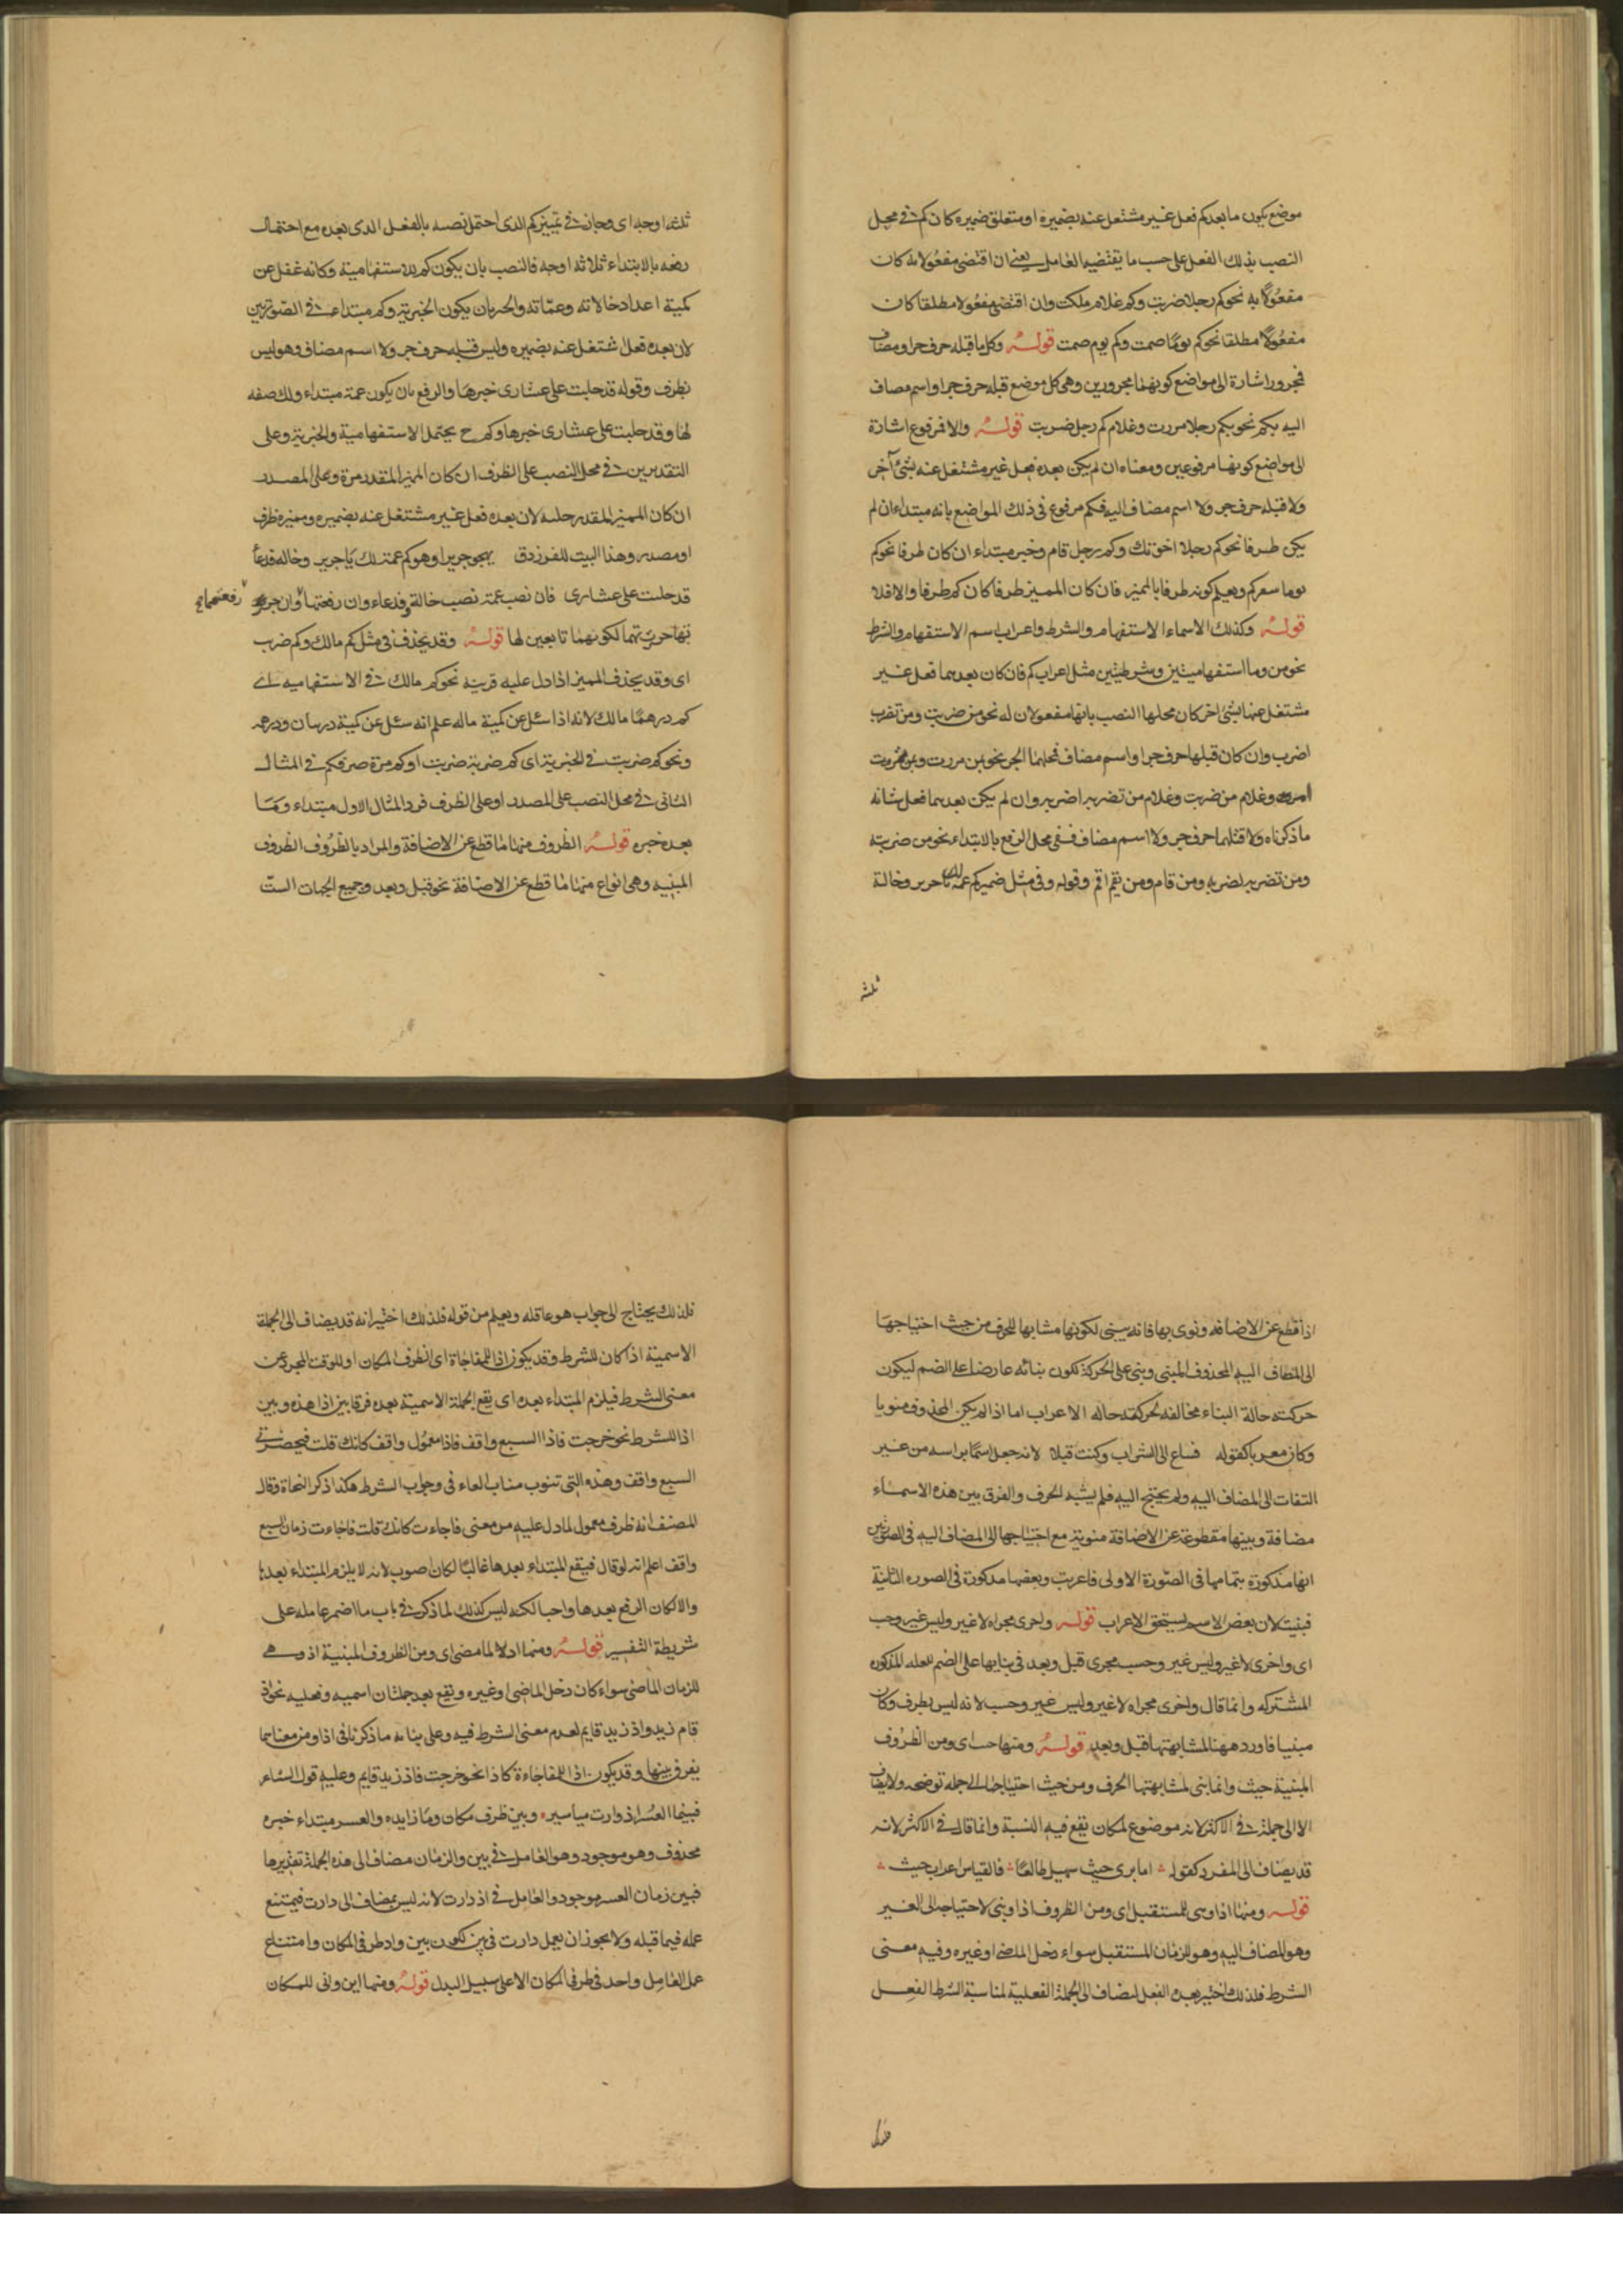 موضع يكون ما بعدكم فعل غير مشتغل عنه بضميره او متعلق ضميره كان كم في محل
النصب بذلك الفعل على حسب ما يقتضيه العامل يعني ان اقتضى مفعولا به كان
مفعولا به نحو كم رجلا ضربت وكم غلام ملكت وان اقتضى مفعولا مطلقا كان
مفعولا مطلقا نحو كم يوما صمت وكم يوم صمت قوله وكل ما قبله حرف جر او مضاف
فمجرور اشارة الى مواضع كونهما مجرورين وهي كل موضع قبله حرف جر او اسم مضاف
اليه بكم نحو بكم رجلا مررت وغلام كم رجل ضربت قوله والا فمرفوع اشارة
الى مواضع كونهما مرفوعين ومعناه ان لم يكن بعده فعل غير مشتغل عنه بشئ آخر
ولا قبله حرف جر ولا اسم مضاف اليه فكم مرفوع في ذلك المواضع بانه مبتداء ان لم
يكن ظرفا نحو كم رجلا اخوتك وكم رجل قام وخبر مبتداء ان كان ظرفا نحو كم
يوما سفركم ويعلم كونه ظرفا بالمميز فان كان المميز ظرفا كان كم ظرفا والا فلا
قوله وكذلك الاسماء الاستفهام والشرط واعراب اسم الاستفهام والشرط
نحو من وما استفهاميتين وشرطيتين مثل اعراب كم فان كان بعدهما فعل غير
مشتغل عنها بشئ اخر كان محلها النصب بانها مفعولان له نحو من ضربت ومن تضرب
اضرب وان كان قبلها حرف جر او اسم مضاف فمحلهما الجر نحو بمن مررت وبمن تمرر
امرر وغلام من ضربت وغلام من تضرب اضرب وان لم يكن بعدهما فعل شانه
ما ذكرناه ولا قبلهما حرف جر ولا اسم مضاف ففي محل الرفع بالابتداء نحو من ضربته
ومن تضربه اضربه ومن قام ومن يقم اقم وقوله وفي مثل ضميركم عمة لك يا جرير وخالة
ثلثة
ثلثة اوجه اى وجاز في تمييز كم الذى احتمل نصبه بالفعل الذى بعده مع احتمال
رفعه بالابتداء ثلاثة اوجه فالنصب بان يكون كم للاستفهامية وكانه غفل عن
كمية اعداد خالاته وعماته والجر بان يكون الخبرية وكم مبتداء في الصورتين
لان بعده فعل اشتغل عنه بضميره وليس قبله حرف جر ولا اسم مضاف وهو ليس
بظرف وقوله قد حلبت على عشارى خبرها والرفع بان يكون عمة مبتداء ولك صفه
لها وقد حلبت على عشارى خبرها وكم ح يحتمل الاستفهامية والخبرية وعلى
التقديرين في محل النصب على الظرف ان كان المميز المقدر مرة وعلى المصدر
ان كان المميز المقدر حلبة لان بعده فعل غير مشتغل عنه بضميره ومميزه ظرف
او مصدر وهذا البيت للفرزدق يهجو جريرا وهو كم عمة لك يا جرير وخاله فدعا
قد حلبت على عشارى فان نصب عمة نصب خالة وفدعاء وان رفعتها وان جر
رفعتهما
تها جررتهما لكونهما تابعين لها قوله وقد يحذف في مثل كم مالك وكم ضربت
اى وقد يحذف المميز اذا دل عليه قرينة نحو كم مالك في الاستفهاميه اى
كم درهما مالك لانه اذا سئل عن كمية ماله علم انه سئل عن كمية درهمان ودرهم
ونحو كم ضربت في الخبرية اى كم ضربة ضربت او كم مرة ضربت فكم في المثال
الثانى في محل النصب على المصدر او على الظرف فرد المثال الاول مبتداء وما
بعده خبره قوله الظروف منها ما قطع عن الاضافة والمراد بالظروف الظروف
المبنيه وهى انواع منها ما قطع عن الاضافة نحو قبل وبعد وجميع الجهات الست
اذا قطع عن الاضافه ونوى بها فانه يبنى لكونها مشابها للحرف من حيث احتياجها
الى المضاف اليه المحذوف المبنى وبنى على الحركة لكون بنائه عارضا على الضم ليكون
حركته حالة البناء مخالفه لحركته حاله الاعراب اما اذا لم يكن المحذوف منويا
وكان معربا كقوله فساغ لى الشراب وكنت قبلا لانه جعل اسما براسه من غير
التفات الى المضاف اليه ولم يحتج اليه فلم يشبه الحرف والفرق بين هذه الاسماء
مضافة وبينها مقطوعة عن الاضافة منوية مع احتياجها الى المضاف اليه في الصورتين
انها مذكورة بتمامها في الصورة الاولى فاعربت وبعضها مذكورة في الصوره الثانية
فبنيت لان بعض الاسم لا يستحق الاعراب قوله واجرى مجراه لا غير وليس غير وحسب
اى واجرى لا غير وليس غير وحسب مجرى قبل وبعد في بنايها على الضم للعله المذكوره
المشتركه وانما قال واجرى مجراه لا غير وليس غير وحسب لانه ليس بظرف وكان
مبنيا فاورد ههنا لمشابهتها قبل وبعد قوله ومنها حيث اى ومن الظروف
المبنية حيث وانما بنى لمشابهتها الحرف ومن حيث احتياجها الى جمله توضحه ولا يضاف
الا الى جملة في الاكثر لانه موضوع لمكان يقع فيه النسبة وانما قال في الاكثر لانه
قد يضاف الى المفرد كقوله اما ترى حيث سهيل طالعا فالقياس اعراب حيث
قوله ومنها اذا وهى للمستقبل اى ومن الظروف اذا وبنى لاحتياجه الى الغير
وهو المضاف اليه وهو للزمان المستقبل سواء دخل الماضى او غيره وفيه معنى
الشرط فلذلك اختير بعده الفعل ليضاف الى الجملة الفعلية لمناسبة الشرط الفعل
فلذلك
فلذلك يحتاج الى جواب هو عاقله ويعلم من قوله فلذلك اختير انه قد يضاف الى الجملة
الاسمية اذا كان للشرط وقد يكون اذا للمفاجاة اى لظرف المكان او للوقت المجرد عن
معنى الشرط فيلزم المبتداء بعده اى يقع الجملة الاسمية بعده فرقا بين اذا هذه وبين
اذا للشرط نحو خرجت فاذا السبع واقف فاذا معمول واقف كانك قلت فبحضرتى
السبع واقف وهذه التى تنوب مناب الفاء في وجواب الشرط هكذا ذكر النحاة وقال
المصنف انه ظرف معمول لما دل عليه من معنى فاجاءت كانك قلت فاجاءت زمان السبع
واقف اعلم انه لو قال فيقع المبتداء بعدها غالبا لكان اصوب لانه لا يلزم المبتداء بعدها
والا لكان الرفع بعدها واجبا لكنه ليس كذلك لما ذكر في باب ما اضمر عامله على
شريطة التفسير قوله ومنها اذ لما مضى اى ومن الظروف المبنية اذ وهى
للزمان الماضى سواء كان دخل الماضى او غيره وتقع بعد جملتان اسميه وفعليه نحو اذ
قام زيد واذ زيد قايم لعدم معنى الشرط فيه وعلى بنائه ما ذكرنا في اذا ومن معناهما
يفرق بينها وقد يكون اذ للمفاجاءة كاذا نحو خرجت فاذ زيد قايم وعليه قول الشاعر
فبينما العسر اذ دارت مياسير وبين ظرف مكان وما زايده والعسر مبتداء خبره
محذوف وهو موجود وهو العامل في بين والزمان مضاف الى هذه الجملة تقديرها
فبين زمان العسر موجود والعامل في اذ دارت لانه ليس بمضاف الى دارت فيمتنع
عمله فيما قبله ولا يجوز ان يعمل دارت في بين لكون بين واذ ظرفى المكان وامتناع
عمل العامل واحد في ظرفى المكان الا على سبيل البدل قوله ومنها اين وانى للمكان